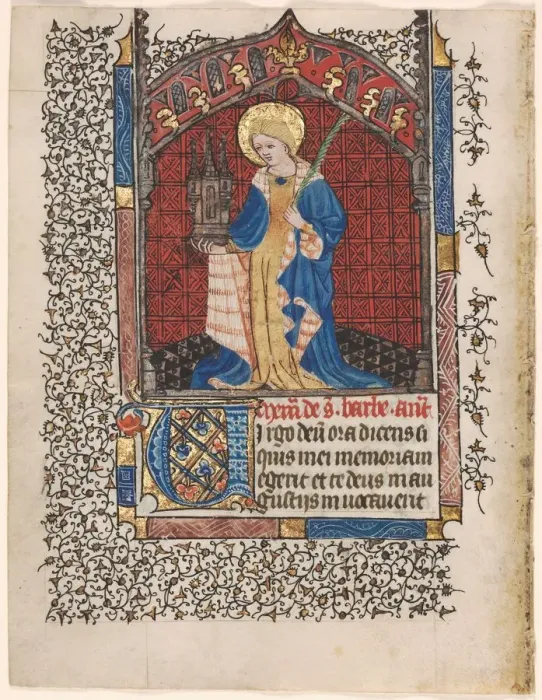 Mem̄ de s̄. barbe. añt.
Virgo deū ora dicens si
quis mei memoriam
egerit et te deus in an
gustijs inuocauerit